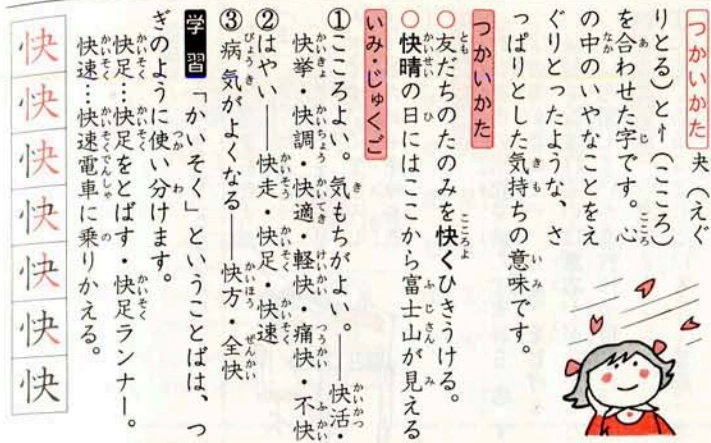 つかいかた 夬（えぐ
りとる）と忄（こころ）
を合わせた字です。心
の中のいやなことをえ
ぐりとったような、さ
っぱりとした気持ちの意味です。
つかいかた
○友だちのたのみを快くひきうける。
○快晴の日にはここから富士山が見える
いみ・じゅくご
①こころよい。気もちがよい。――快活・
快挙・快調・快適・軽快・痛快・不快
②はやい――快走・快足・快速
③病気がよくなる――快方・全快
学習 「かいそく」ということばは、つ
ぎのように使い分けます。
快足…快足をとばす・快足ランナー。
快速…快速電車に乗りかえる。
快快快快快快快